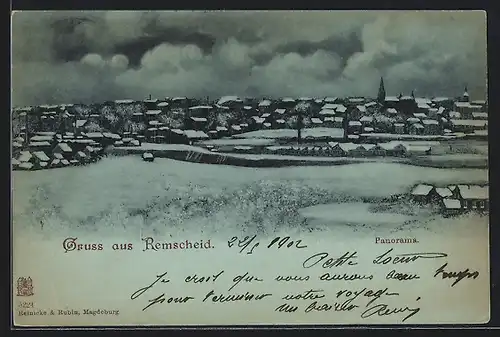 Gruss aus Remscheid. 22/5 1902
Panorama.
Petite Soeur
Je crois que vous aurez beau temps
pour terminer votre voyage
un baiser
5221
Heinicke & Rubin, Magdeburg